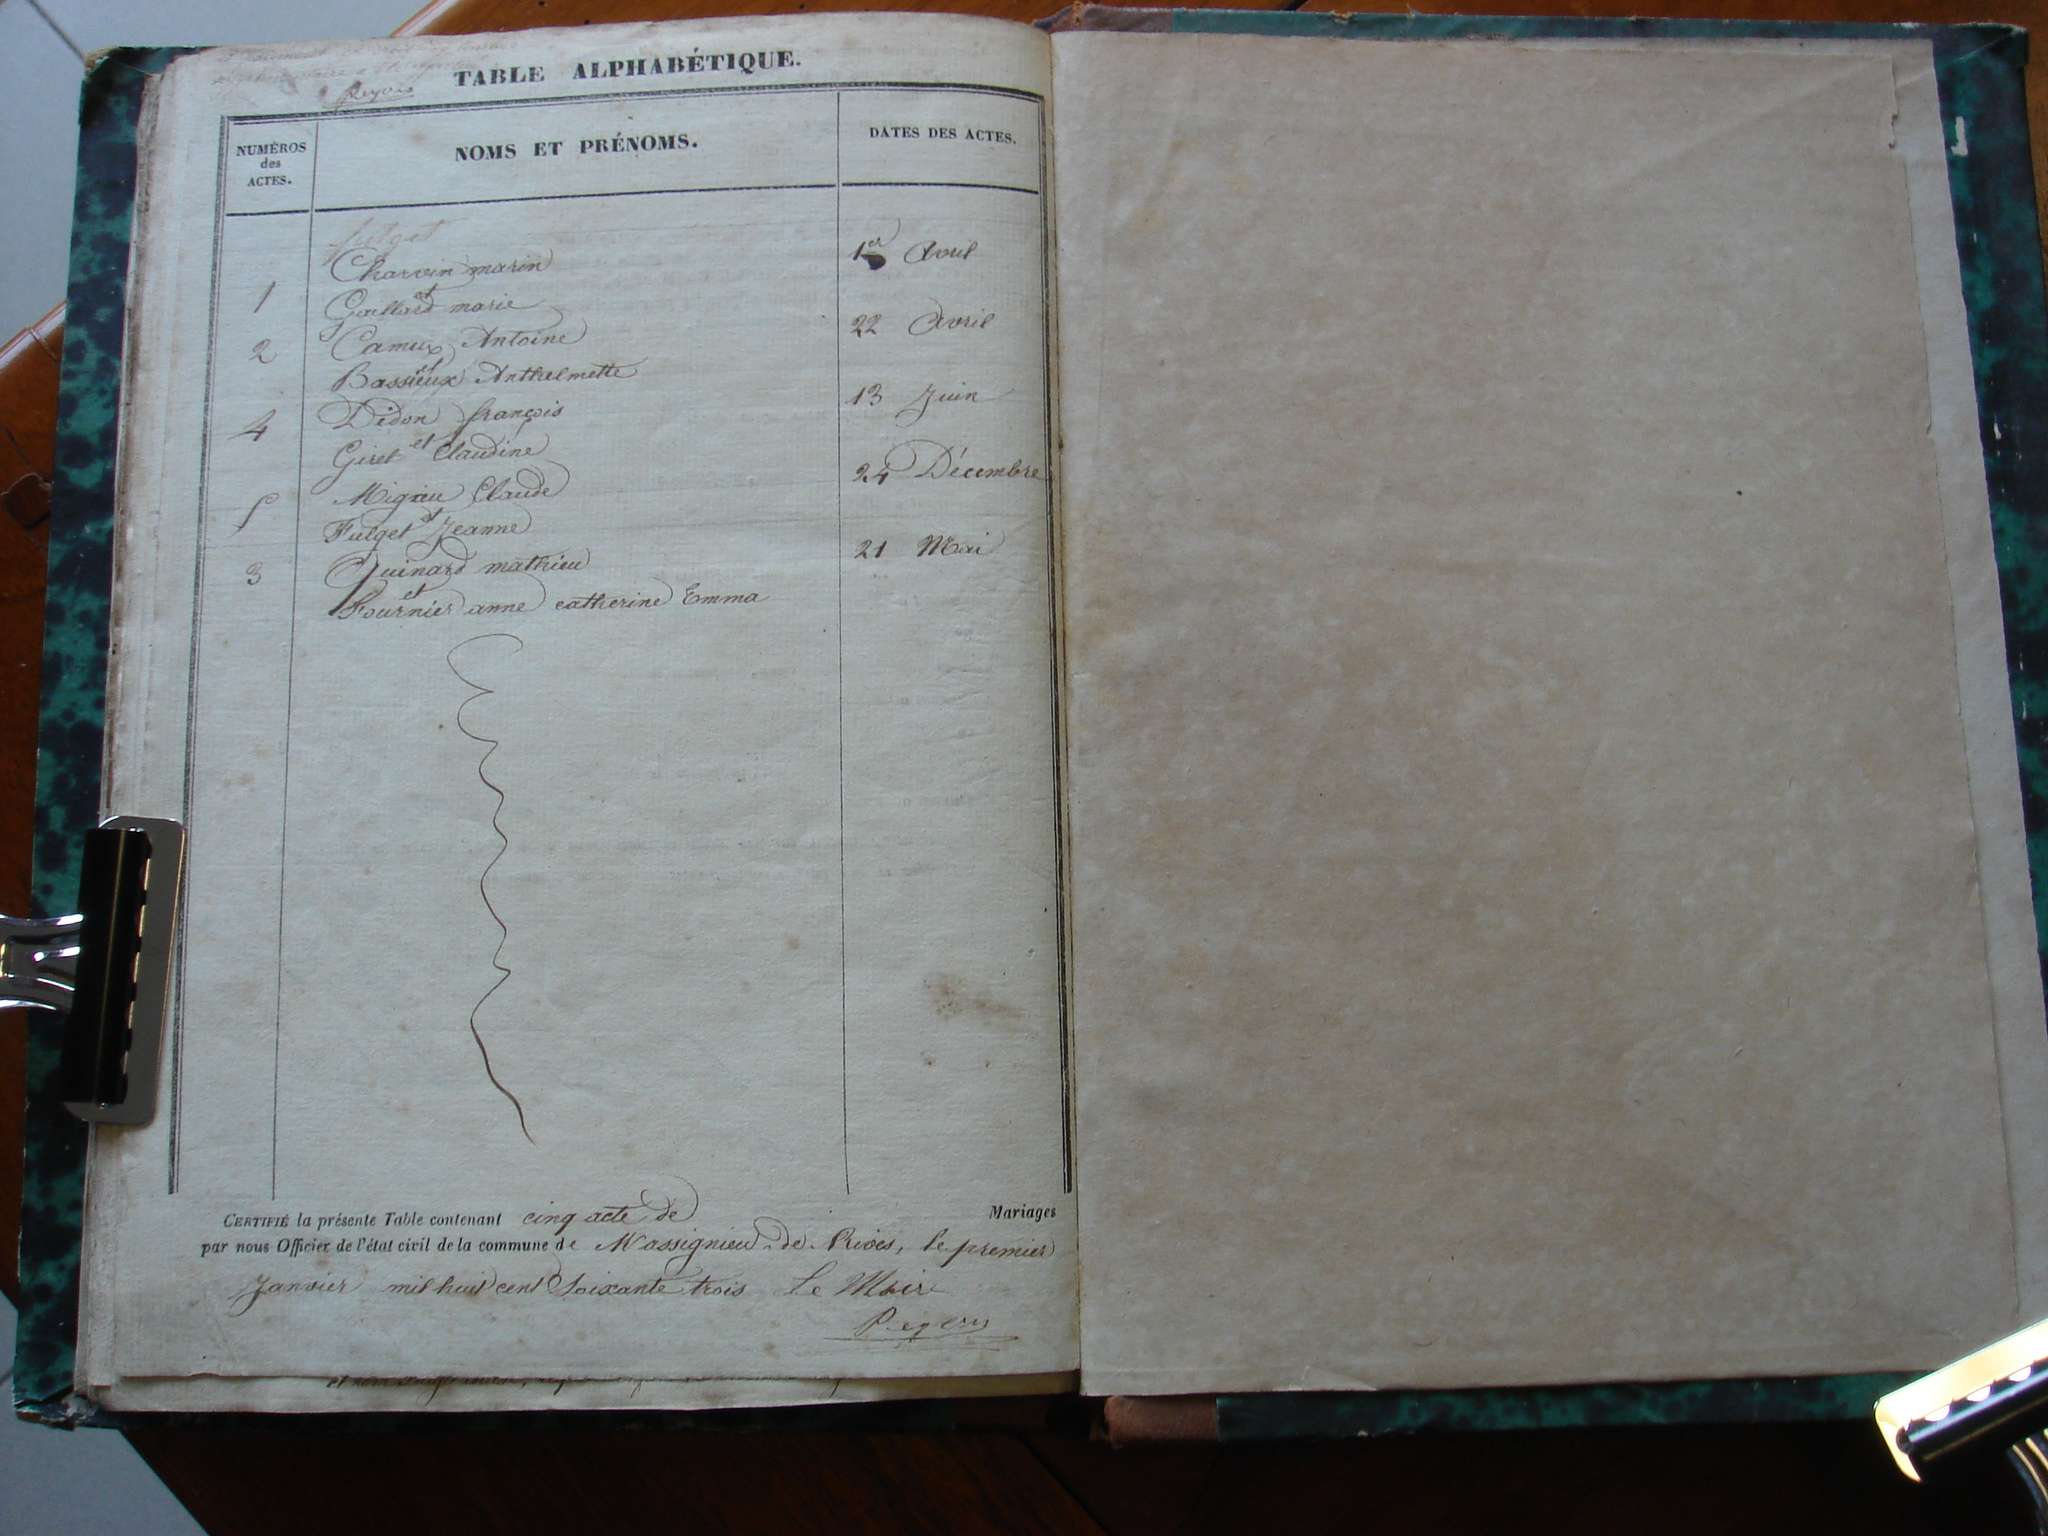 TABLE ALPHABÉTIQUE.
NUMÉROS des ACTES.
NOMS ET PRÉNOMS.
DATES DES ACTES.
Charvin marin 1er Avril
1 et
Gaillard marie
2 Camux Antoine 22 Avril
et
Bassieux Anthelmette
4 Didon françois 13 Juin
et
Giret Claudine
5 Migieu Claude 24 Décembre
et
Fulget Jeanne
3 Guinard mathieu 21 Mai
et
Fournier anne catherine Emma
CERTIFIÉ la présente Table contenant cinq acte de Mariages
par nous Officier de l'état civil de la commune de Massignieu-de-Rives, le premier
Janvier mil huit cent Soixante trois Le Maire